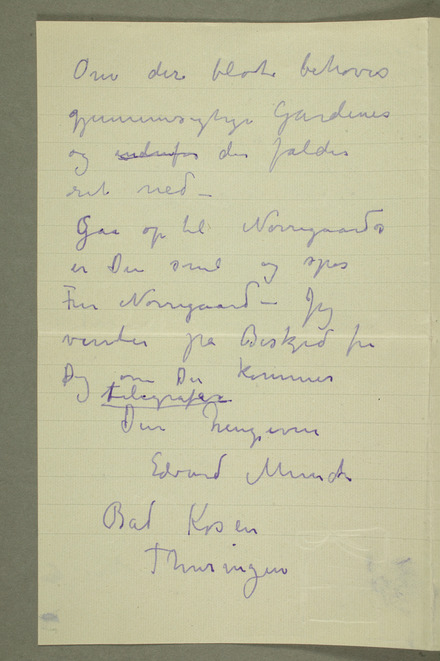 Om der blot behøves
gjennemsigtige Gardiner
og der falder
ret ned –
Gaa op til Nørregaards
er Du snil og spør
Fru Nørregaard – Jeg
venter på Beskjed fra
Dig om Du kommer
telegrafer
Din hengivne
Edvard Munch
Bad Kosen
Thuringen